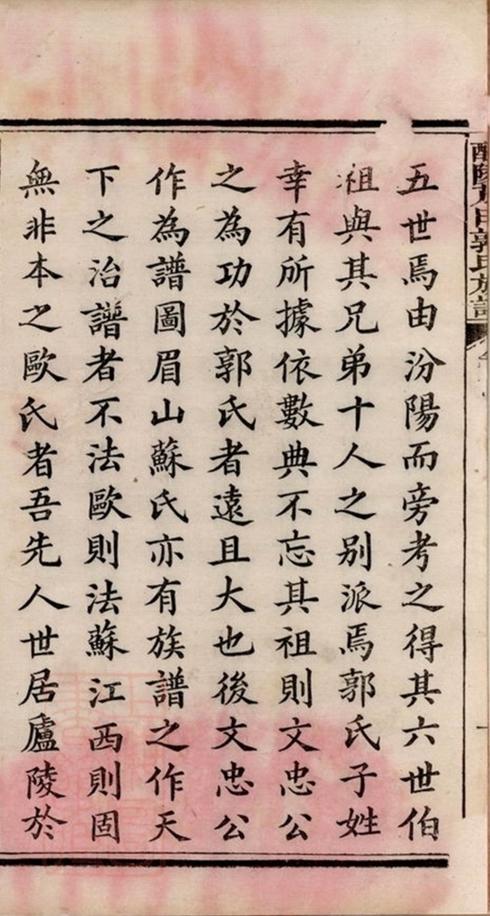 五世焉由汾陽而旁考之得其六世伯
祖與其兄弟十人之别派焉郭氏子姓
幸有所據依數典不忘其祖則文忠公
之為功於郭氏者遠且大也後文忠公
作為譜圖眉山蘇氏亦有族譜之作天
下之治譜者不法歐則法蘇江西則固
無非本之歐氏者吾先人世居廬陵於